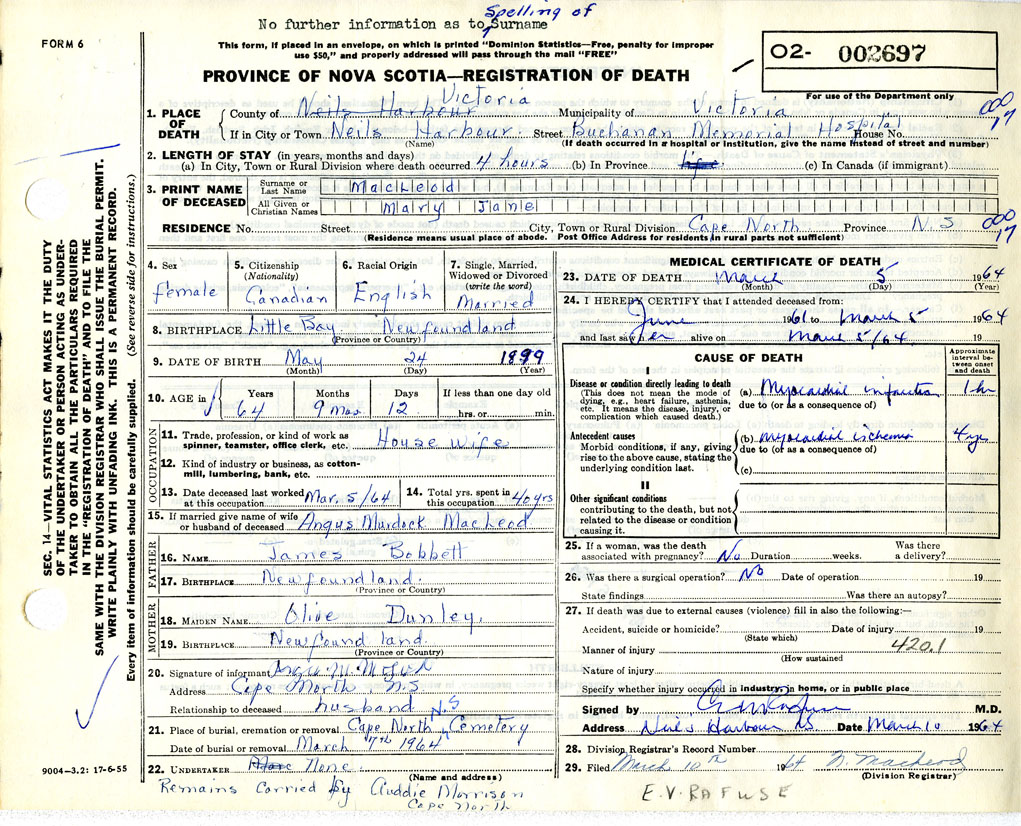 Spelling of
No further information as to Surname
FORM 6
This form, if placed in an envelope, on which is printed "Dominion Statistics—Free, penalty for improper
use $50," and properly addressed will pass through the mail "FREE"
02- 002697
PROVINCE OF NOVA SCOTIA—REGISTRATION OF DEATH
For use of the Department only
1. PLACE OF DEATH
County of Neils Harbour Victoria Municipality of Victoria 000 17
If in City or Town Neils Harbour. Street Buchanan Memorial Hospital House No.
(Name) (If death occurred in a hospital or Institution, give the name instead of street and number)
2. LENGTH OF STAY (in years, months and days)
(a) In City, Town or Rural Division where death occurred 4 hours (b) in Province life (c) In Canada (if immigrant)
3. PRINT NAME OF DECEASED
Surname or Last Name MacLeod
All Given or Christian Names Mary Jane
RESIDENCE No. Street City, Town or Rural Division Cape North Province N.S 000 17
(Residence means usual place of abode. Post Office Address for residents in rural parts not sufficient)
4. Sex female
5. Citizenship (Nationality) Canadian
6. Racial Origin English
7. Single, Married, Widowed or Divorced (write the word) Married
8. BIRTHPLACE Little Bay. Newfoundland
(Province or Country)
9. DATE OF BIRTH May 24 1899
(Month) (Day) (Year)
10. AGE in Years 64 Months 9 Mos. Days 12 If less than one day old hrs. or min.
OCCUPATION
11. Trade, profession, or kind of work as
spinner, teamster, office clerk, etc. House Wife
12. Kind of industry or business, as cotton-
mill, lumbering, bank, etc.
13. Date deceased last worked at this occupation Mar. 5/64
14. Total yrs. spent in this occupation 40 yrs
15. If married give name of wife
or husband of deceased Angus Murdock MacLeod
FATHER
16. NAME James Bobbett
17. BIRTHPLACE Newfoundland.
(Province or Country)
MOTHER
18. MAIDEN NAME Olive Dunley.
19. BIRTHPLACE Newfoundland
(Province or Country)
20. Signature of informant Angus M. McLeod
Address Cape North N.S
Relationship to deceased husband N.S
21. Place of burial, cremation or removal Cape North Cemetery
Date of burial or removal March 7th 1964
22. UNDERTAKER None.
(Name and address)
Remains Carried by Auddie Morrison
Cape North
MEDICAL CERTIFICATE OF DEATH
23. DATE OF DEATH March 5 1964
(Month) (Day) (Year)
24. I HEREBY CERTIFY that I attended deceased from:
June 1961 to March 5 1964
and last saw her alive on March 5/64.
CAUSE OF DEATH
Approximate interval between onset and death
I
Disease or condition directly leading to death
(This does not mean the mode of
dying, e.g., heart failure, asthenia,
etc. It means the disease, injury, or
complication which caused death.)
(a) Myocardial infarction 1 hr
due to (or as a consequence of)
Antecedent causes
Morbid conditions, if any, giving
rise to the above cause, stating the
underlying condition last.
(b) Myocardial ischemia 4 yr
due to (or as a consequence of)
(c)
II
Other significant conditions
contributing to the death, but not
related to the disease or condition
causing it.
25. If a woman, was the death
associated with pregnancy? No Duration weeks. Was there a delivery?
26. Was there a surgical operation? No Date of operation 19
State findings Was there an autopsy?
27. If death was due to external causes (violence) fill in also the following:—
Accident, suicide or homicide? Date of injury 19
(State which)
Manner of injury 420.1
(How sustained
Nature of injury
Specify whether injury occurred in industry, in home, or in public place
Signed by M.D.
Address Neil's Harbour NS. Date March 10 1964
28. Division Registrar's Record Number
29. Filed March 10th 1964 N. MacLeod
(Division Registrar)
E.V. RAFUSE
9004-3.2: 17-6-55
SEC. 14—VITAL STATISTICS ACT MAKES IT THE DUTY
OF THE UNDERTAKER OR PERSON ACTING AS UNDER-
TAKER TO OBTAIN ALL THE PARTICULARS REQUIRED
IN THE "REGISTRATION OF DEATH" AND TO FILE THE
SAME WITH THE DIVISION REGISTRAR WHO SHALL ISSUE THE BURIAL PERMIT.
WRITE PLAINLY WITH UNFADING INK. THIS IS A PERMANENT RECORD.
Every item of information should be carefully supplied. (See reverse side for instructions.)